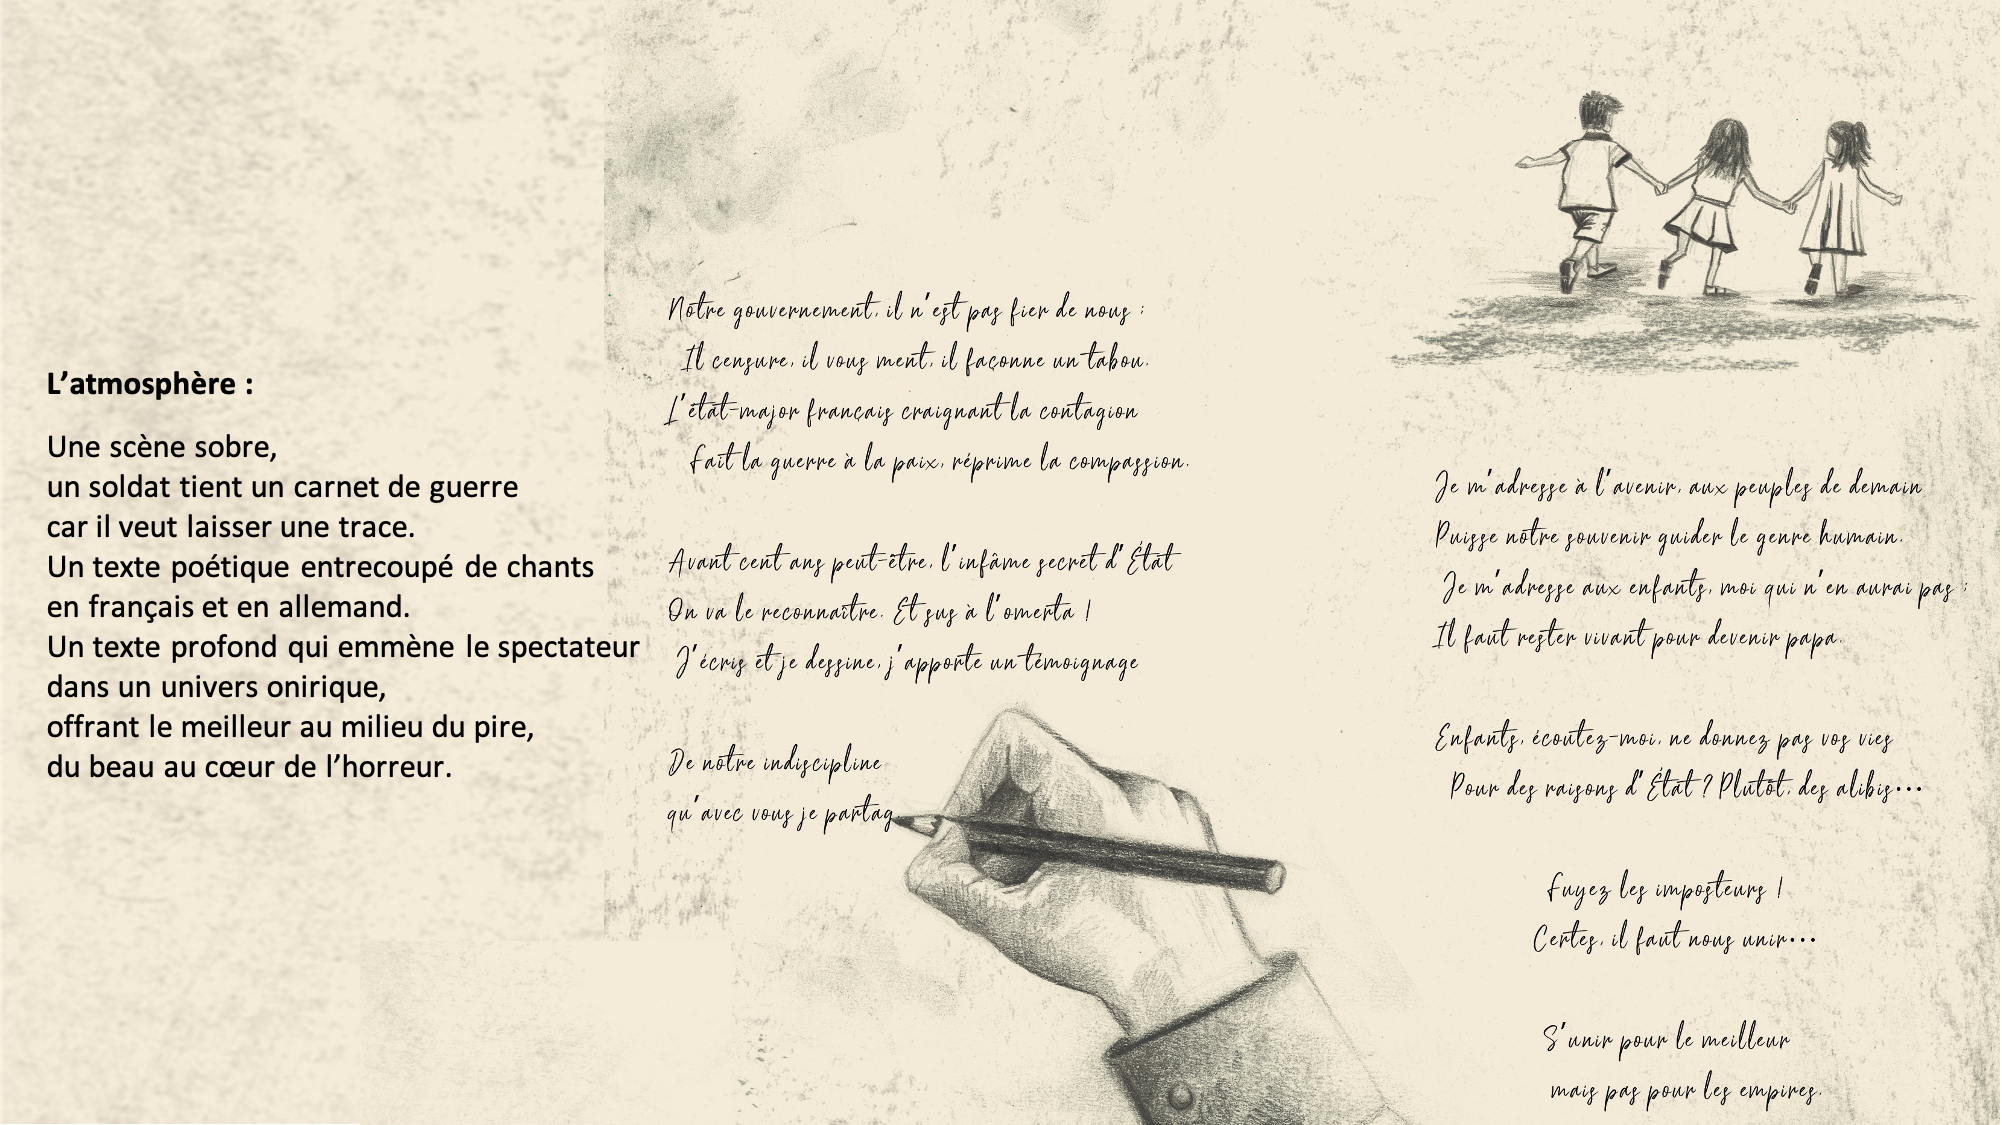 L'atmosphère :
Une scène sobre,
un soldat tient un carnet de guerre
car il veut laisser une trace.
Un texte poétique entrecoupé de chants
en français et en allemand.
Un texte profond qui emmène le spectateur
dans un univers onirique,
offrant le meilleur au milieu du pire,
du beau au cœur de l'horreur.
Notre gouvernement, il n'est pas fier de nous :
Il censure, il vous ment, il façonne un tabou.
L'état-major français craignant la contagion
Fait la guerre à la paix, réprime la compassion.
Avant cent ans peut-être, l'infâme secret d'État
On va le reconnaître. Et sus à l'omerta !
J'écris et je dessine, j'apporte un témoignage
De notre indiscipline
qu'avec vous je partag
Je m'adresse à l'avenir, aux peuples de demain
Puisse notre souvenir guider le genre humain.
Je m'adresse aux enfants, moi qui n'en aurai pas :
Il faut rester vivant pour devenir papa.
Enfants, écoutez-moi, ne donnez pas vos vies
Pour des raisons d'État ? Plutôt, des alibis...
Fuyez les imposteurs !
Certes, il faut nous unir...
S'unir pour le meilleur
mais pas pour les empires.